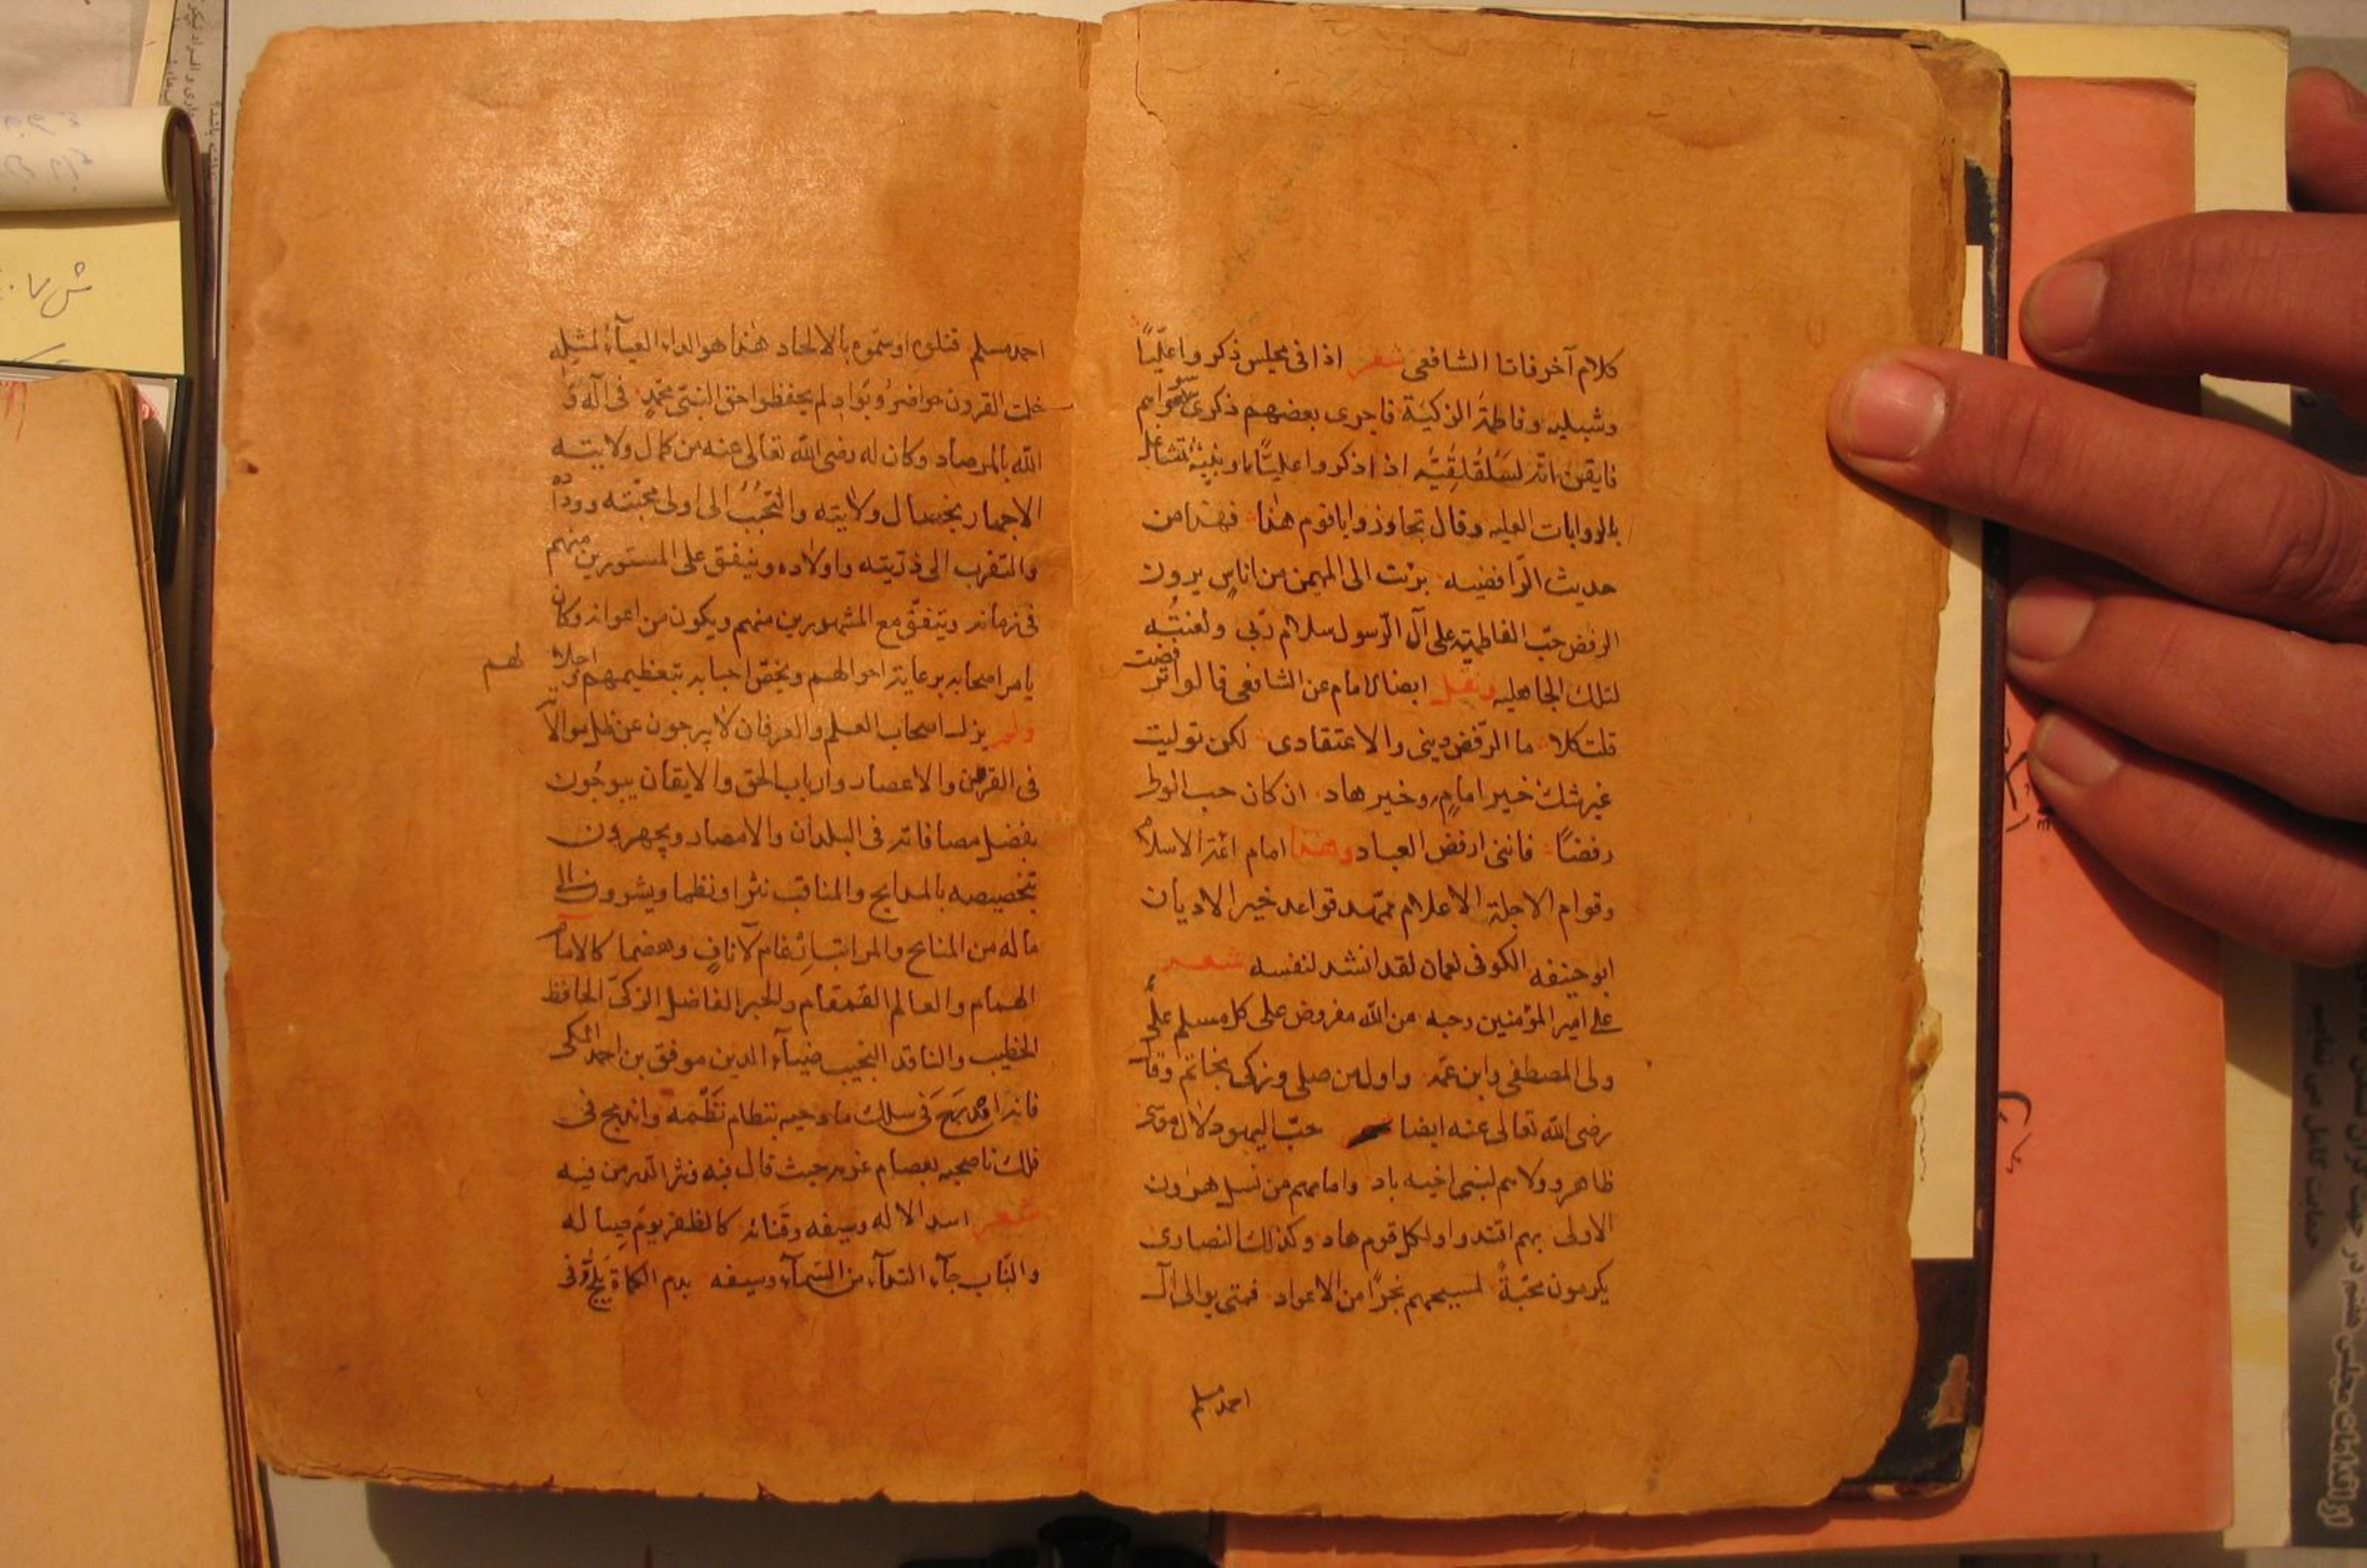 كلام آخر فاتا الشافعى شعر اذا فى مجلس ذكروا عليّاً
وشبليه وفاطمة الزكيّة فاجرى بعضهم ذكرى سواهم
فايقن انّه لسلقلقيّه اذا ذكروا عليّاً او بنيه تشاغل
بالروايات العليه وقال تجاوزوا ياقوم هذا فهذا من
حديث الرّافضيه برئت الى المهيمن من اناس يرون
الرفض حبّ الفاطميّه على آل الرّسول سلام ربّى ولعنته
لتلك الجاهليه ونقل ايضا الامام عن الشافعى قالوا ترفضت
قلت كلا ما الرّفض دينى والا اعتقادى لكن توليت
غير شك خير امام وخير هاد ان كان حب الوطى
رفضاً فاننى ارفض العباد وهذا امام ائمة الاسلام
وقوام الاجلة الاعلام ممهّد قواعد خير الاديان
ابو حنيفه الكوفى نعمان لقد انشد لنفسه شعر
على امير المؤمنين وحبه من الله مفروض على كل مسلم علىّ
ولى المصطفى وابن عمّه واول من صلى وزكى بخاتم وقال
رضى الله تعالى عنه ايضا حبّ اليهود لال موسى
ظاهر وولاءهم لبنى اخيه باد وامامهم من نسل هرون
الاولى بهم اقتدوا ولكل قوم هاد وكذلك النصارى
يكرمون محبّةً لمسيحهم نجراً من الاعواد فمتى يوالى آل
احمد مسلم
احمد مسلم قتلوه او سمّوه بالالحاد هذا هو الداء العيآء لمثله
خلت القرون حواضر وبواد لم يحفظوا حق النبىّ محمّد فى آله و
الله بالمرصاد وكان له رضى الله تعالى عنه من كمال ولايته
الاجهار بخصال ولايته والتحبّب الى اولى محبّته ووداده
والتقرب الى ذرّيته واولاده وينفق على المستورين منهم
فى زمانه ويتفق مع المشهورين منهم ويكون من اعوانه وكان
يامر اصحابه برعاية احوالهم ويخصّ احبابه بتعظيمهم واجلالهم
ولم يزل اصحاب العلم والعرفان لا يرجون عن ظل موالاته
فى القرون والاعصار وارباب الحق والايقان يبوحون
بفضل مصافاته فى البلدان والامصار ويجهرون
بتخصيصه بالمدايح والمناقب نثرا ونظما ويشيرون الى
ماله من المنايح والمراتب ارغام لآناف وهضما كالامام
الهمام والعالم القمقام والحبر الفاضل الزكىّ الحافظ
الخطيب والناقد النجيب ضيآء الدين موفق بن احمد المكى
فانه اندمج فى سلك مادحيه بنظام نظمه واندمج فى
فلك ناصحيه بعصام عزمه حيث قال فيه ونثر الدر من فيه
شعر اسد الاله وسيفه وقناته كالظفر يوم صياله
والنّاب جآء الندآء من السّمآء وسيفه بدم الكماة يلجّ فى